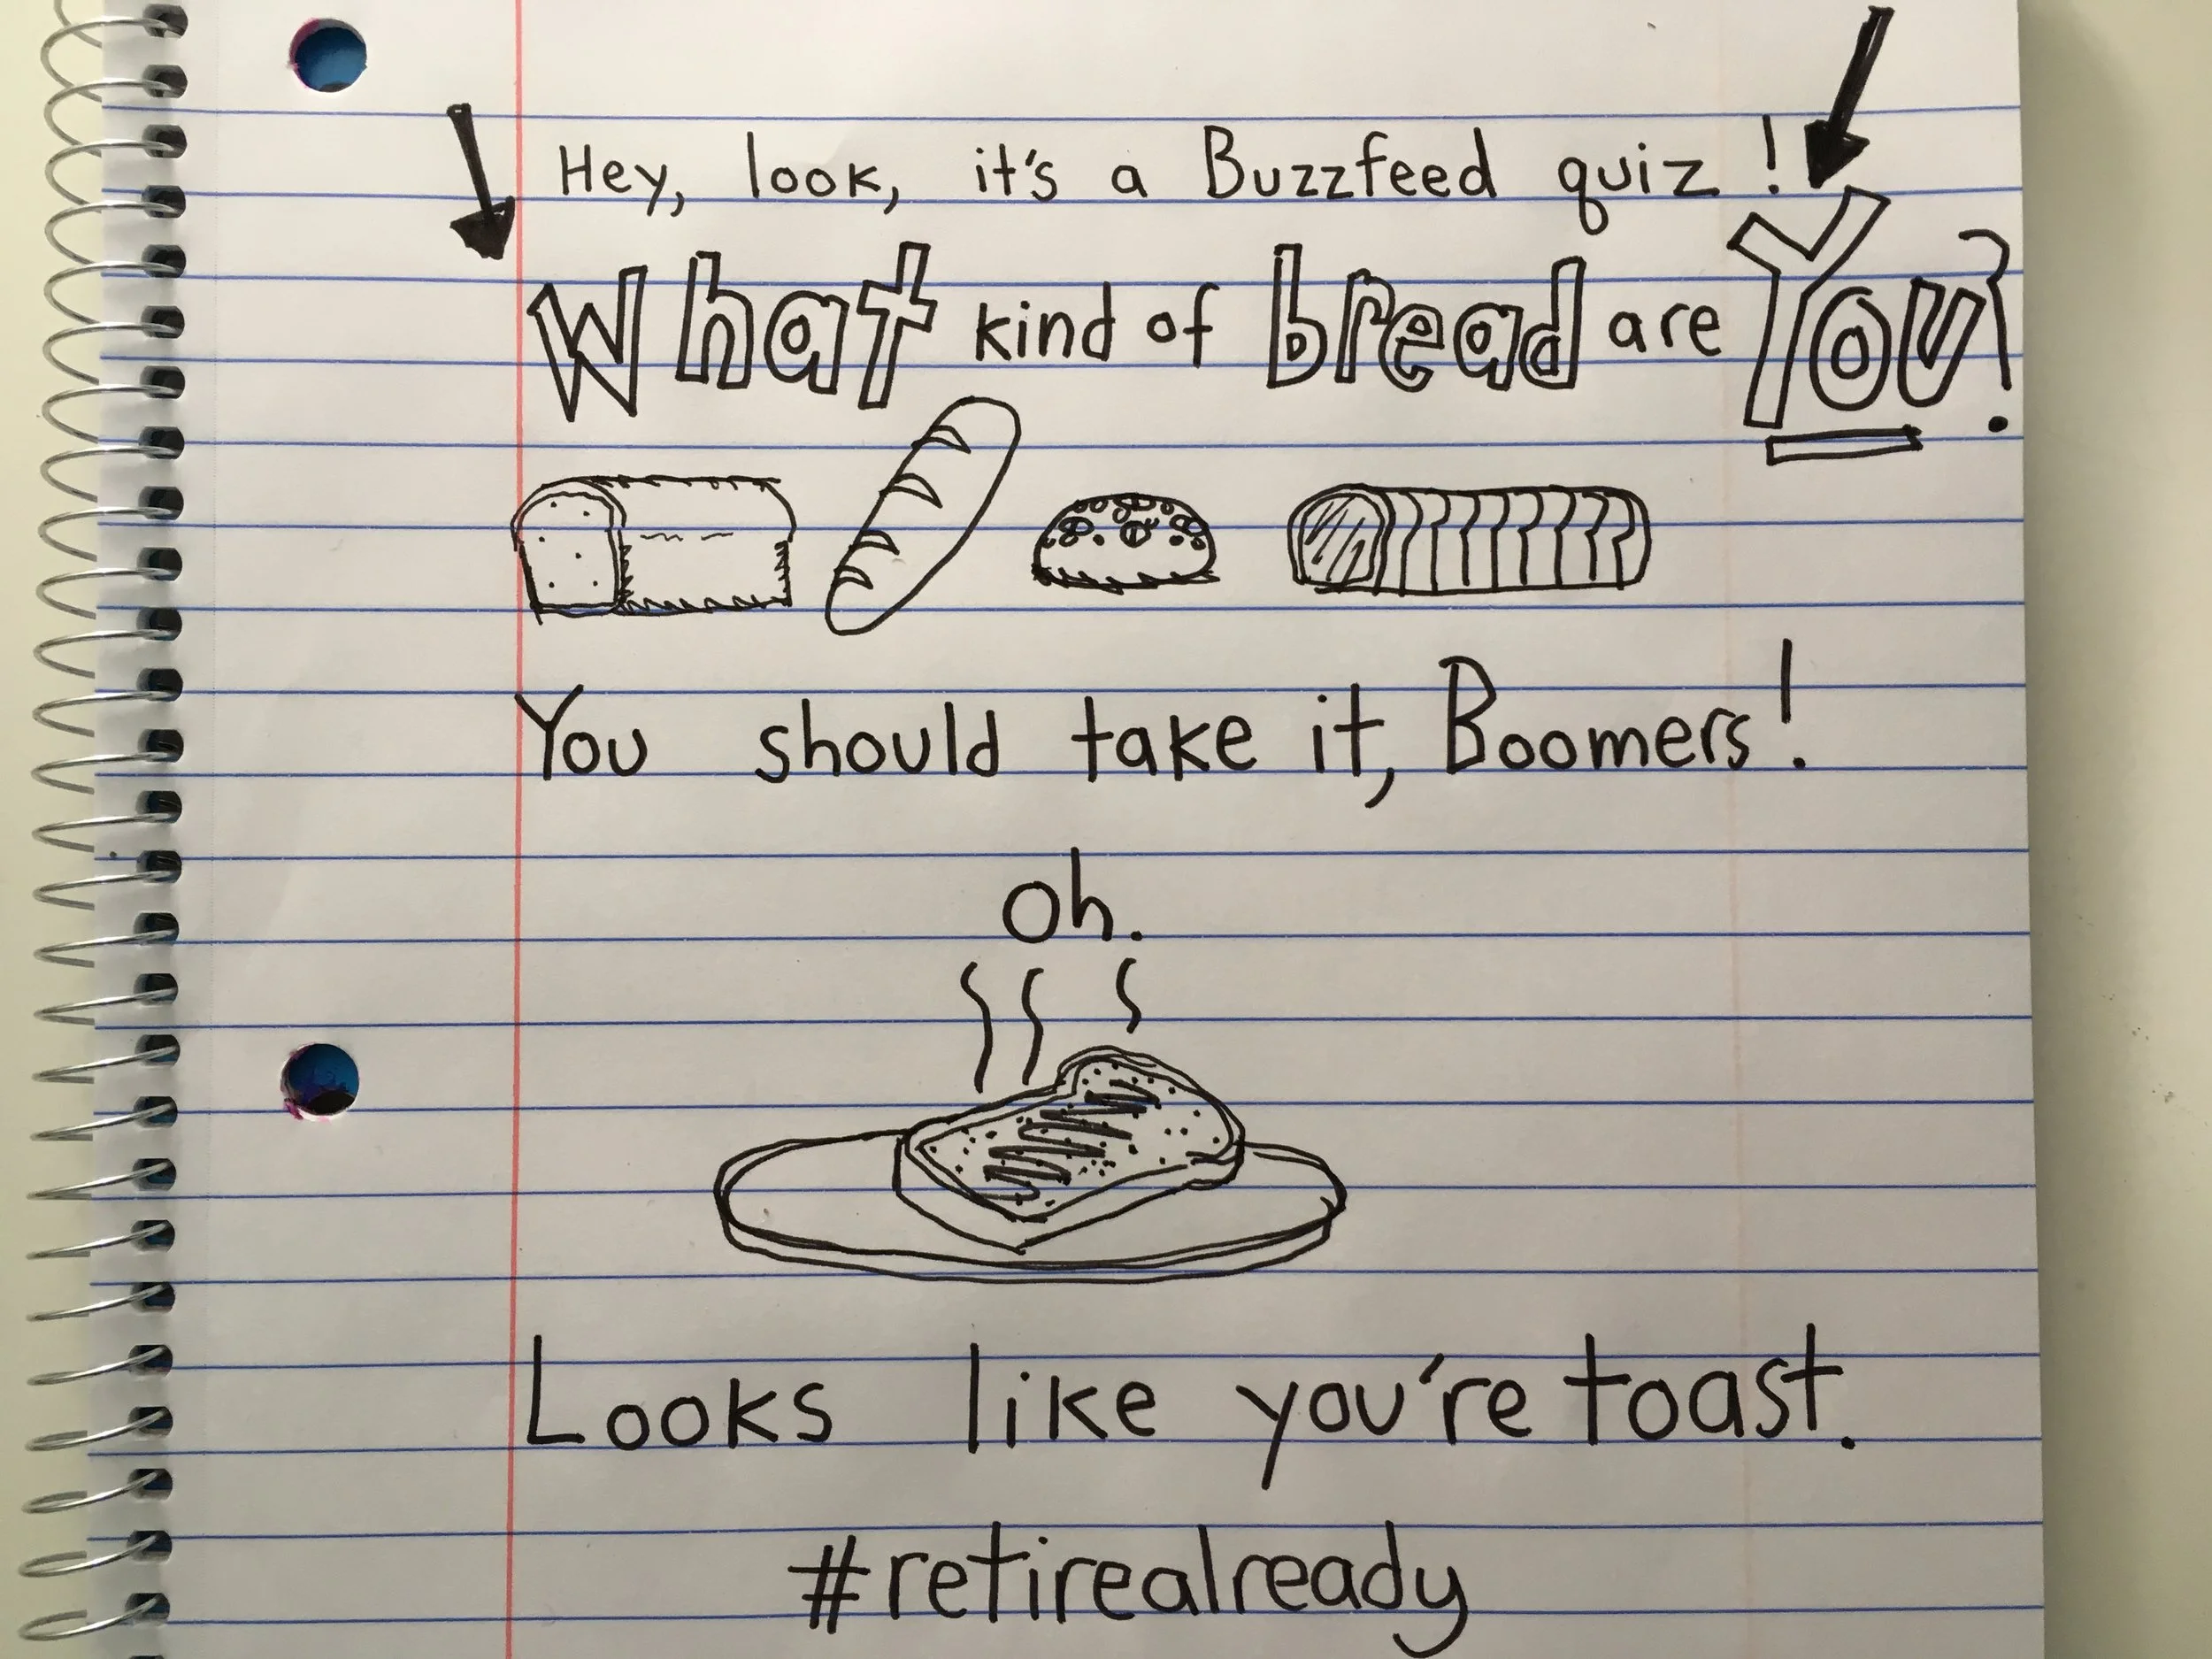 Hey, look, it's a Buzzfeed quiz!
What kind of bread are You?
You should take it, Boomers!
oh.
Looks like you're toast.
#retirealready